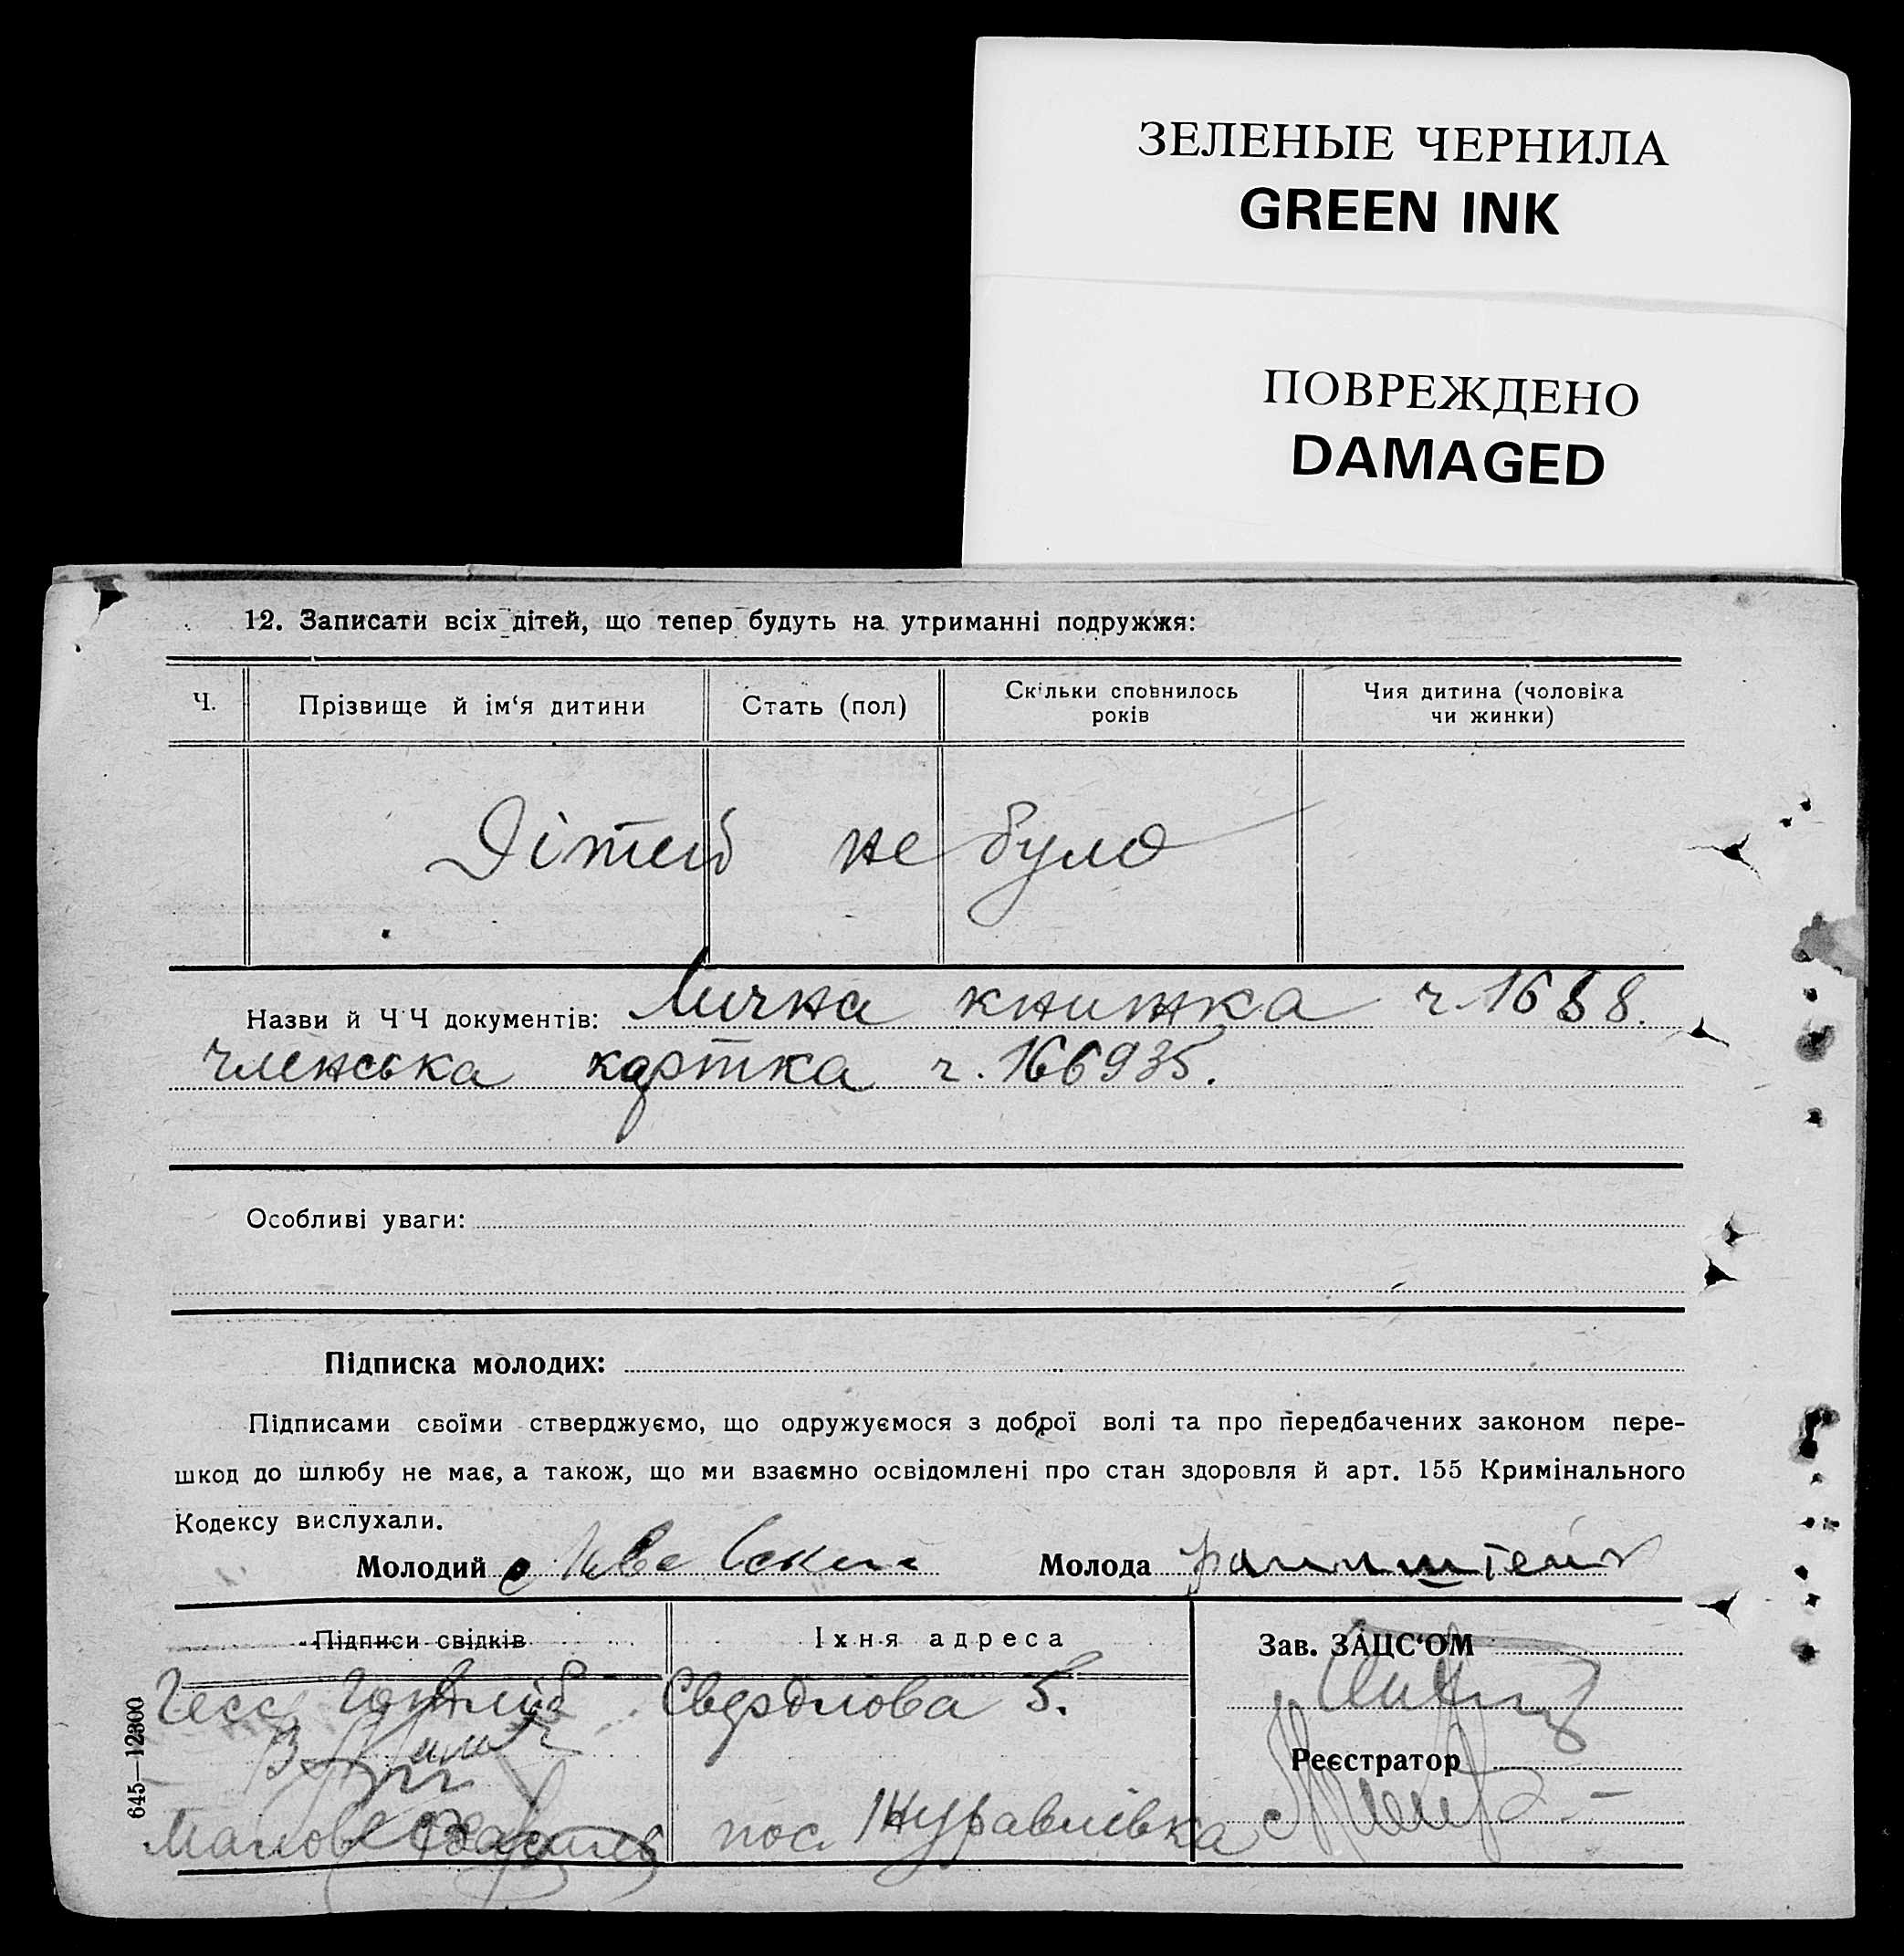 ЗЕЛЕНЫЕ ЧЕРНИЛА
GREEN INK
ПОВРЕЖДЕНО
DAMAGED
12. Записати всіх дітей, що тепер будуть на утриманні подружжя:
Ч.
Прізвище й ім‘я дитини
Стать (пол)
Скільки сповнилось
років
Чия дитина (чоловіка
чи жинки)
Дітей не було
Назви й Ч Ч документів: Лична книжка ч. 1688.
членська картка ч. 166935.
Особливі уваги:
Підписка молодих:
Підписами своїми стверджуємо, що одружуємося з доброї волі та про передбачених законом пере-
шкод до шлюбу не має, а також, що ми взаємно освідомлені про стан здоровля й арт. 155 Кримінального
Кодексу вислухали.
Молодий
Молода
Підписи свідків
Їхня адреса
Зав. ЗАЦС‘ОМ
Гесс Готліб Свердлова 5.
Реєстратор
пос. Журавлівка
645—12300